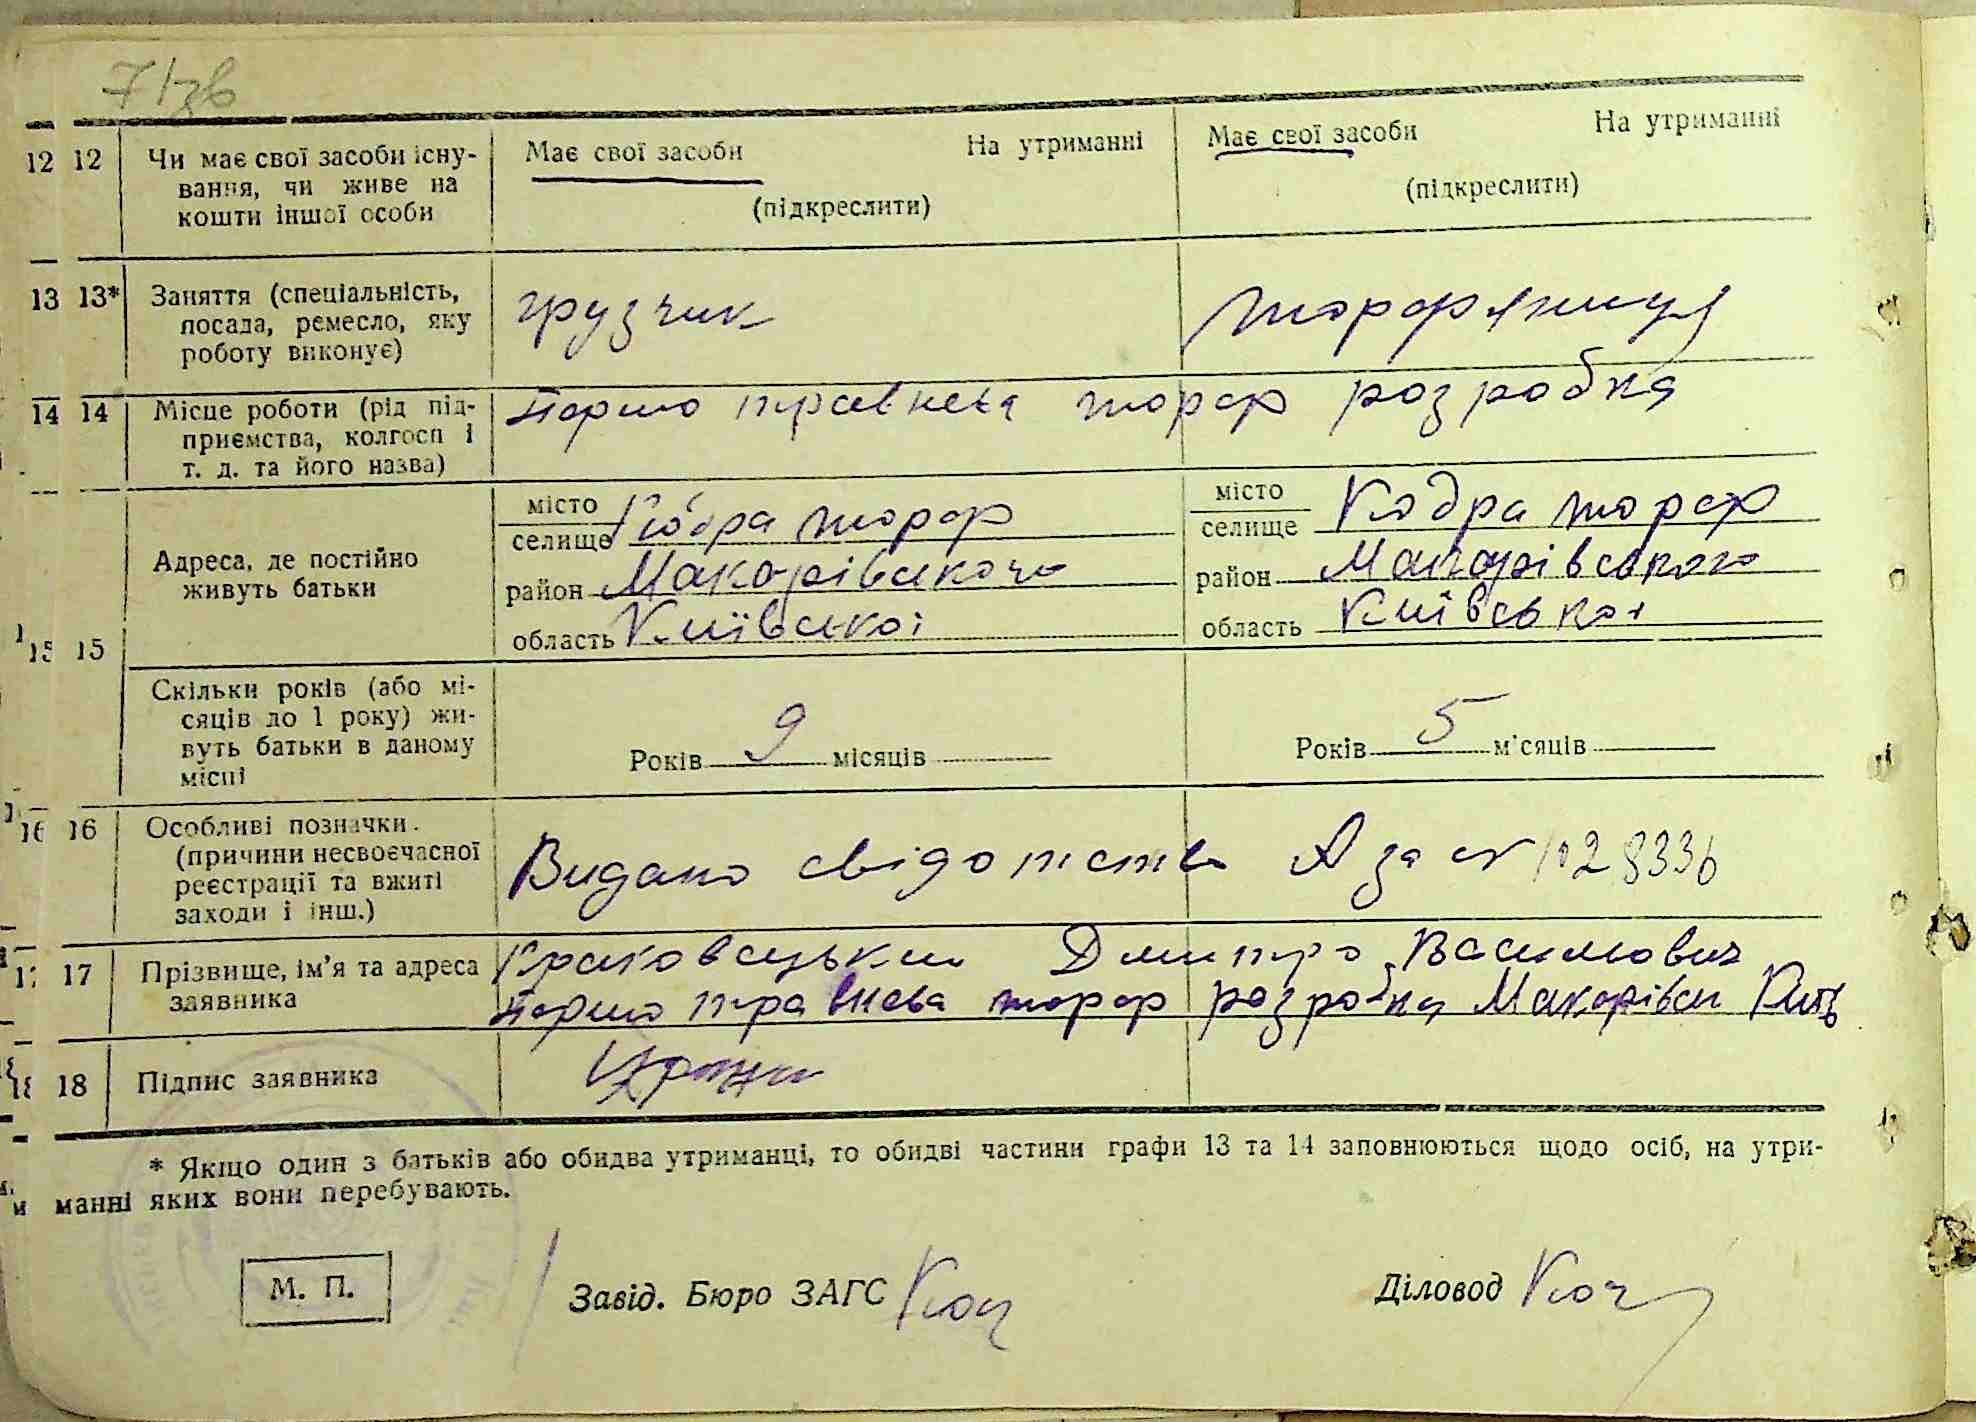 71зв
12 12 Чи має свої засоби існу-
вання, чи живе на
кошти іншої особи
Має свої засоби На утриманні
(підкреслити)
Має свої засоби На утриманні
(підкреслити)
13 13* Заняття (спеціальність,
посада, ремесло, яку
роботу виконує)
грузчик
торфяниця
14 14 Місце роботи (рід під-
приємства, колгосп і
т. д. та його назва)
Першо травнева торф розробка
15 15
Адреса, де постійно
живуть батьки
місто
селище Кодра торф
район Макарівського
область Київської
місто
селище Кодра торф
район Макарівського
область Київської
Скільки років (або мі-
сяців до 1 року) жи-
вуть батьки в даному
місці
Років 9 місяців
Років 5 м'сяців
16 16 Особливі позначки.
(причини несвоєчасної
реєстрації та вжиті
заходи і інш.)
Видано свідотство А за №
17 17 Прізвище, ім'я та адреса
заявника
Краковецький Дмитро Васильович
Першо травнева торф розробка Макарівськ Київ
18 18 Підпис заявника
* Якщо один з батьків або обидва утриманці, то обидві частини графи 13 та 14 заповнюються щодо осіб, на утри-
манні яких вони перебувають.
М. П.
Завід. Бюро ЗАГС Коч
Діловод Коч